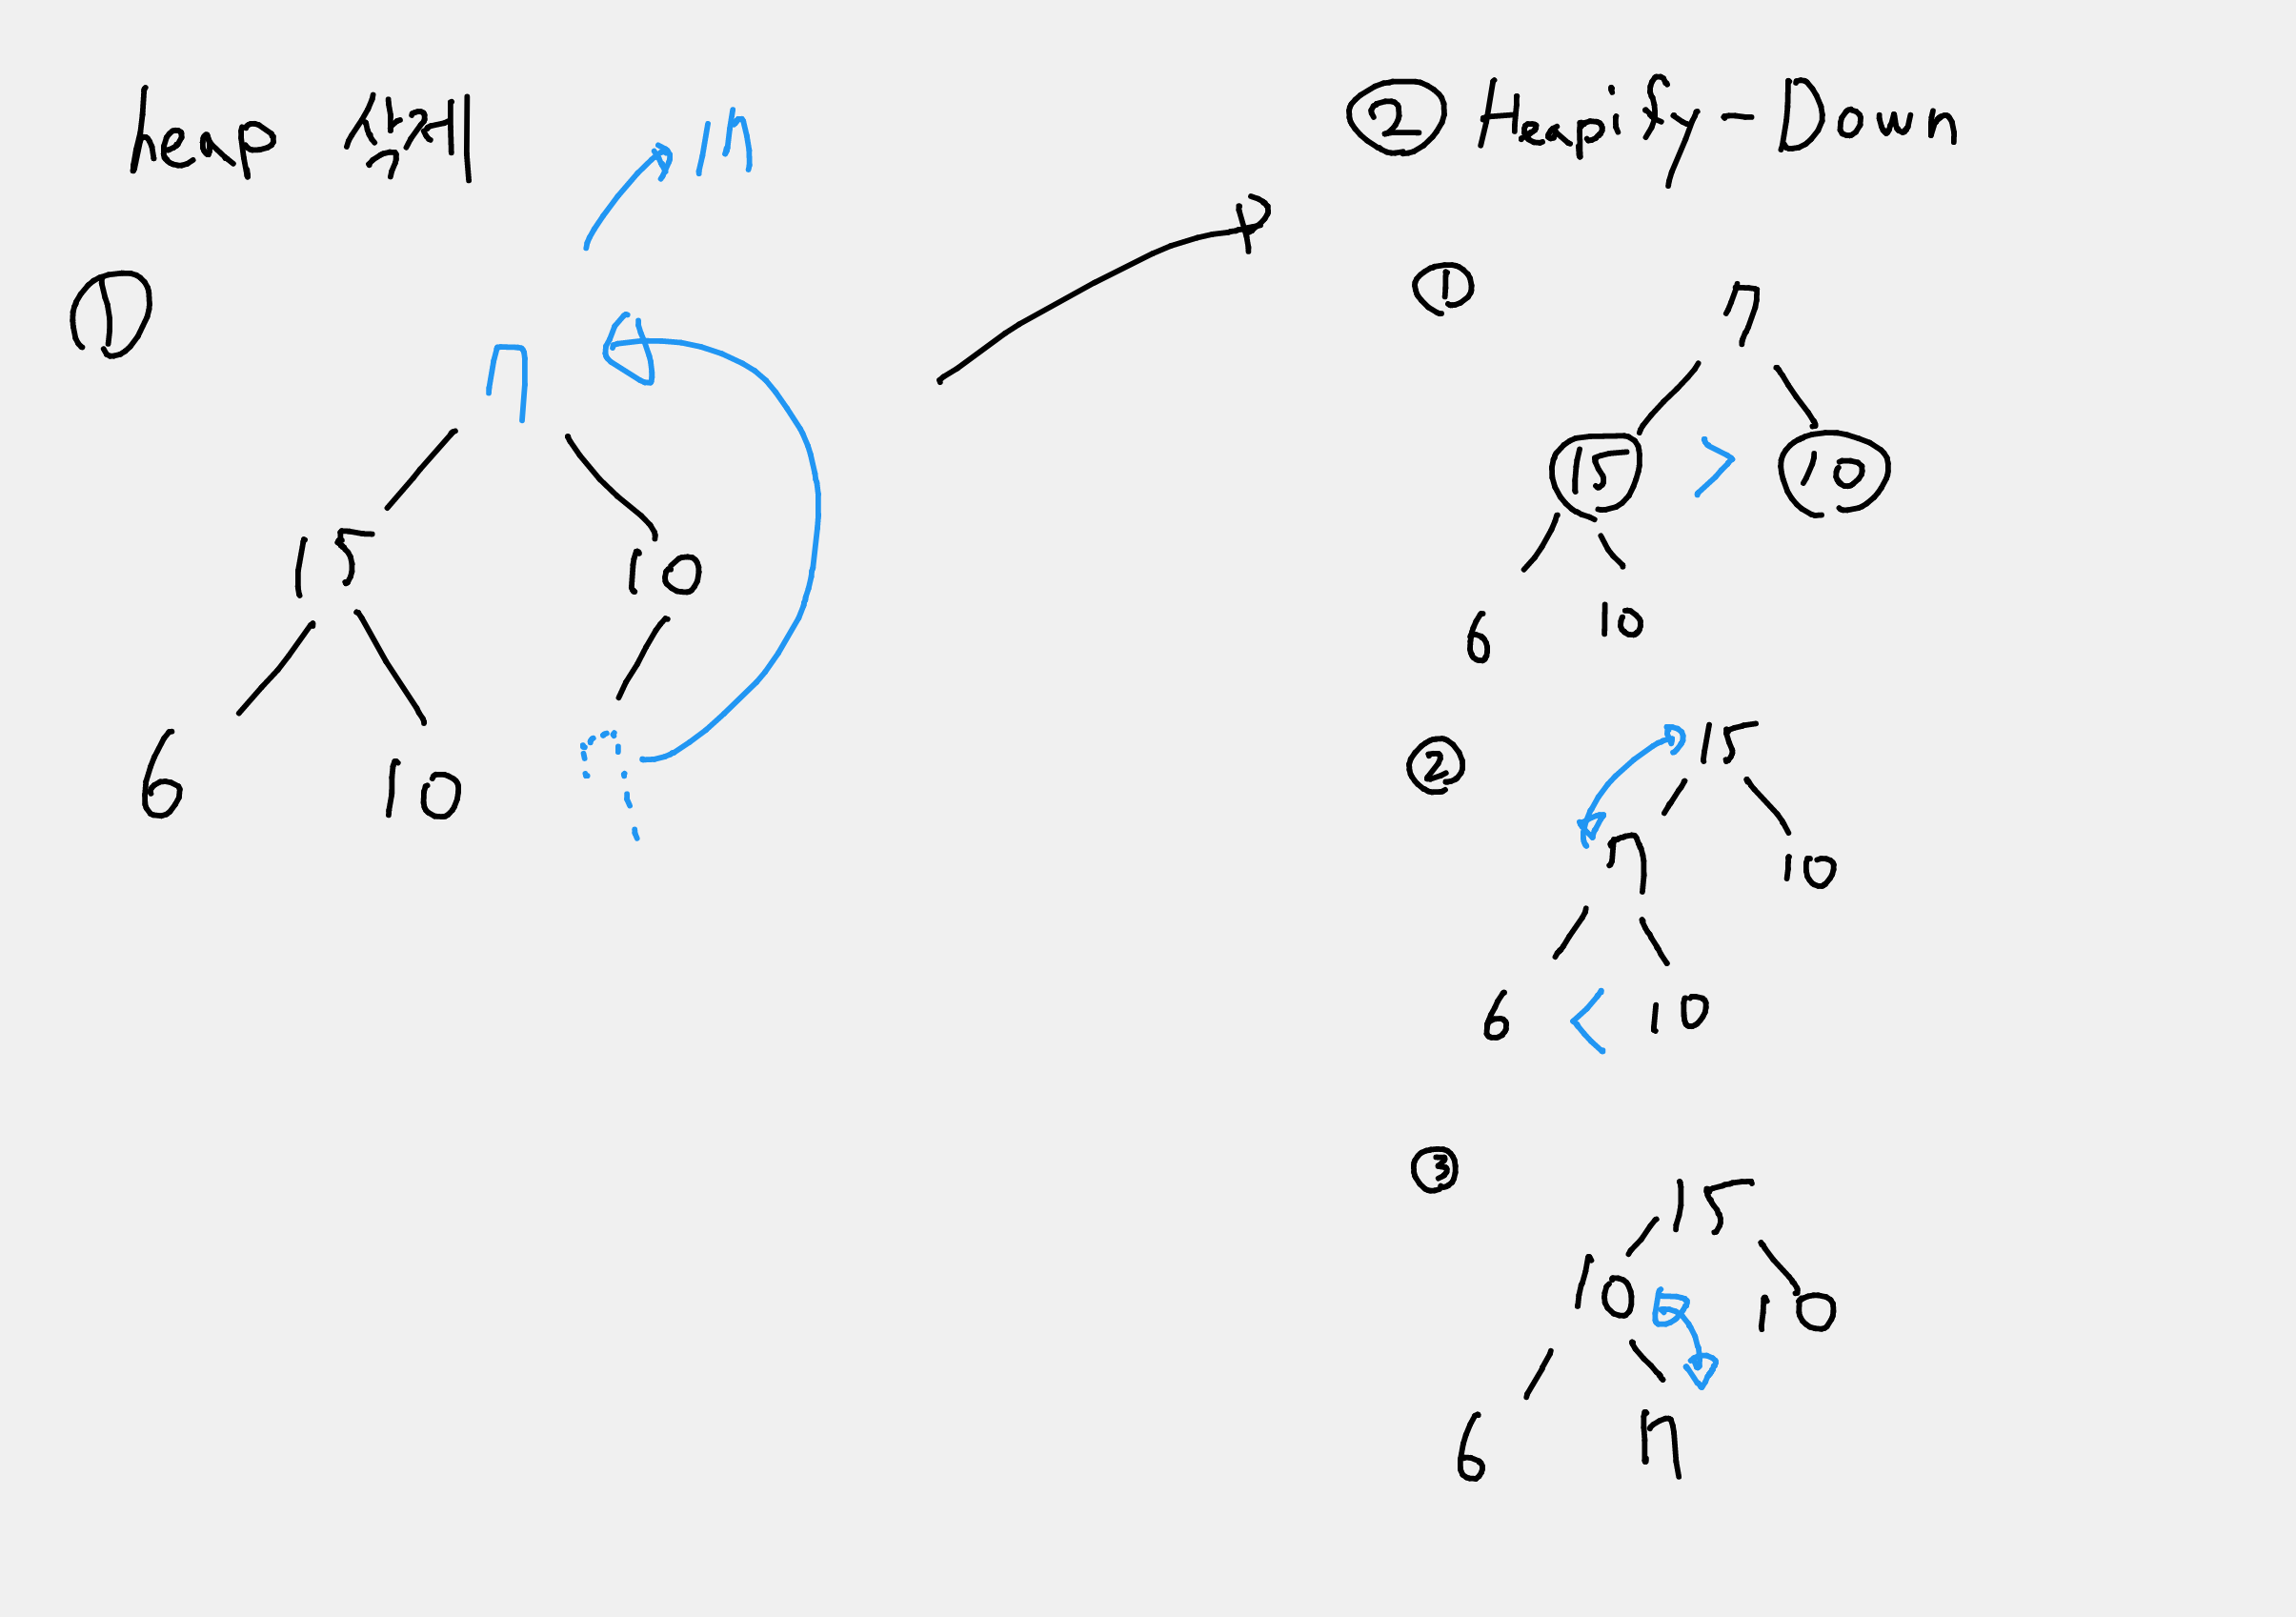 heap 삭제
17
①
7
15 10
6 10 7
② Heapify-Down
①
7
15 > 10
6 10
②
15
7 10
6 < 10
③
15
10 10
6 7